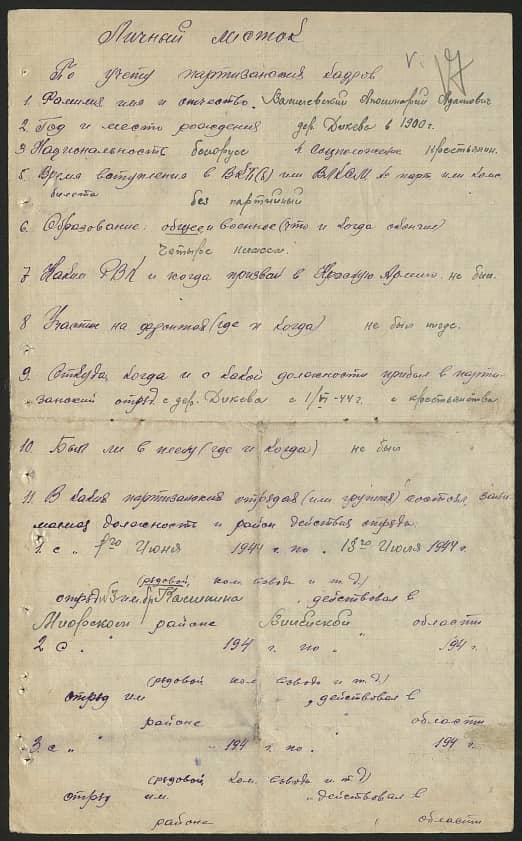 Личный листок
V. 17
По учету партизанских кадров
1. Фамилия имя и отчество. Адамович
2. Год и место рождения дер. Дикева в 1900 г.
3. Национальность белорус 4. Соцположение крестьянин.
5. Время вступления в ВКП(б) или ВЛКСМ № парт или комс
билета без партийный
6. Образование: общее и военное (что и когда окончил)
Четыре класса.
7. Каким РВК и когда призван в Красную Армию. не был.
8. Участие на фронтах (где и когда) не был нигде.
9. Откуда, когда и с какой должности прибыл в парти-
занский отряд с дер. Дикева с 1/VI-44 г. с крестьянства
10. Был ли в плену (где и когда) не был
11. В каких партизанских отрядах (или группах) состоял, зани-
маемая должность и район действия отряда.
1. с " Июня 1944 г. по " 18го Июля 1944 г.
(рядовой, ком. взвода и т.д.)
отряд №3 им. действовал в
Миорском районе Вилейской области
2 с " 194 г. по " 194 г.
(рядовой ком. взвода и т.д.)
отряд им , действовал в
районе области
3. с " " 194 г. по " 194 г.
(рядовой ком. взвода и т.д.)
отряд им. " действовал в
районе области